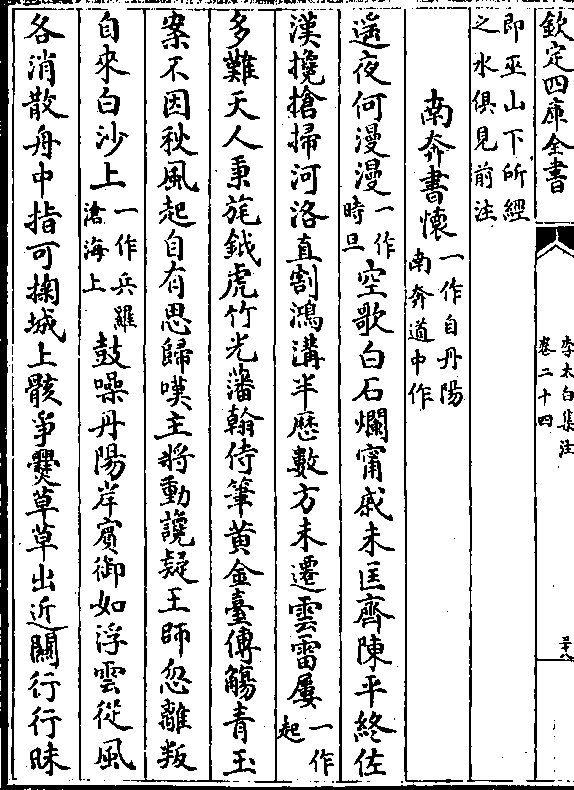 欽定四庫全書
李太白集注
卷二十四
即巫山下所經
之水俱見前注
南奔書懷一作自丹陽
南奔道中作
遥夜何漫漫一作
時旦空歌白石爛甯戚未匡齊陳平終佐
漢攙搶掃河洛直割鴻溝半歴數方未遷雲雷屢一作
起
多難天人秉旄鉞虎竹光藩翰侍筆黄金臺傳觴青玉
案不因秋風起自有思歸嘆主將動讒疑王師忽離叛
自來白沙上一作兵羅
滄海上鼓噪丹陽岸賓御如浮雲從風
各消散舟中指可掬城上骸爭爨草草出近關行行昧